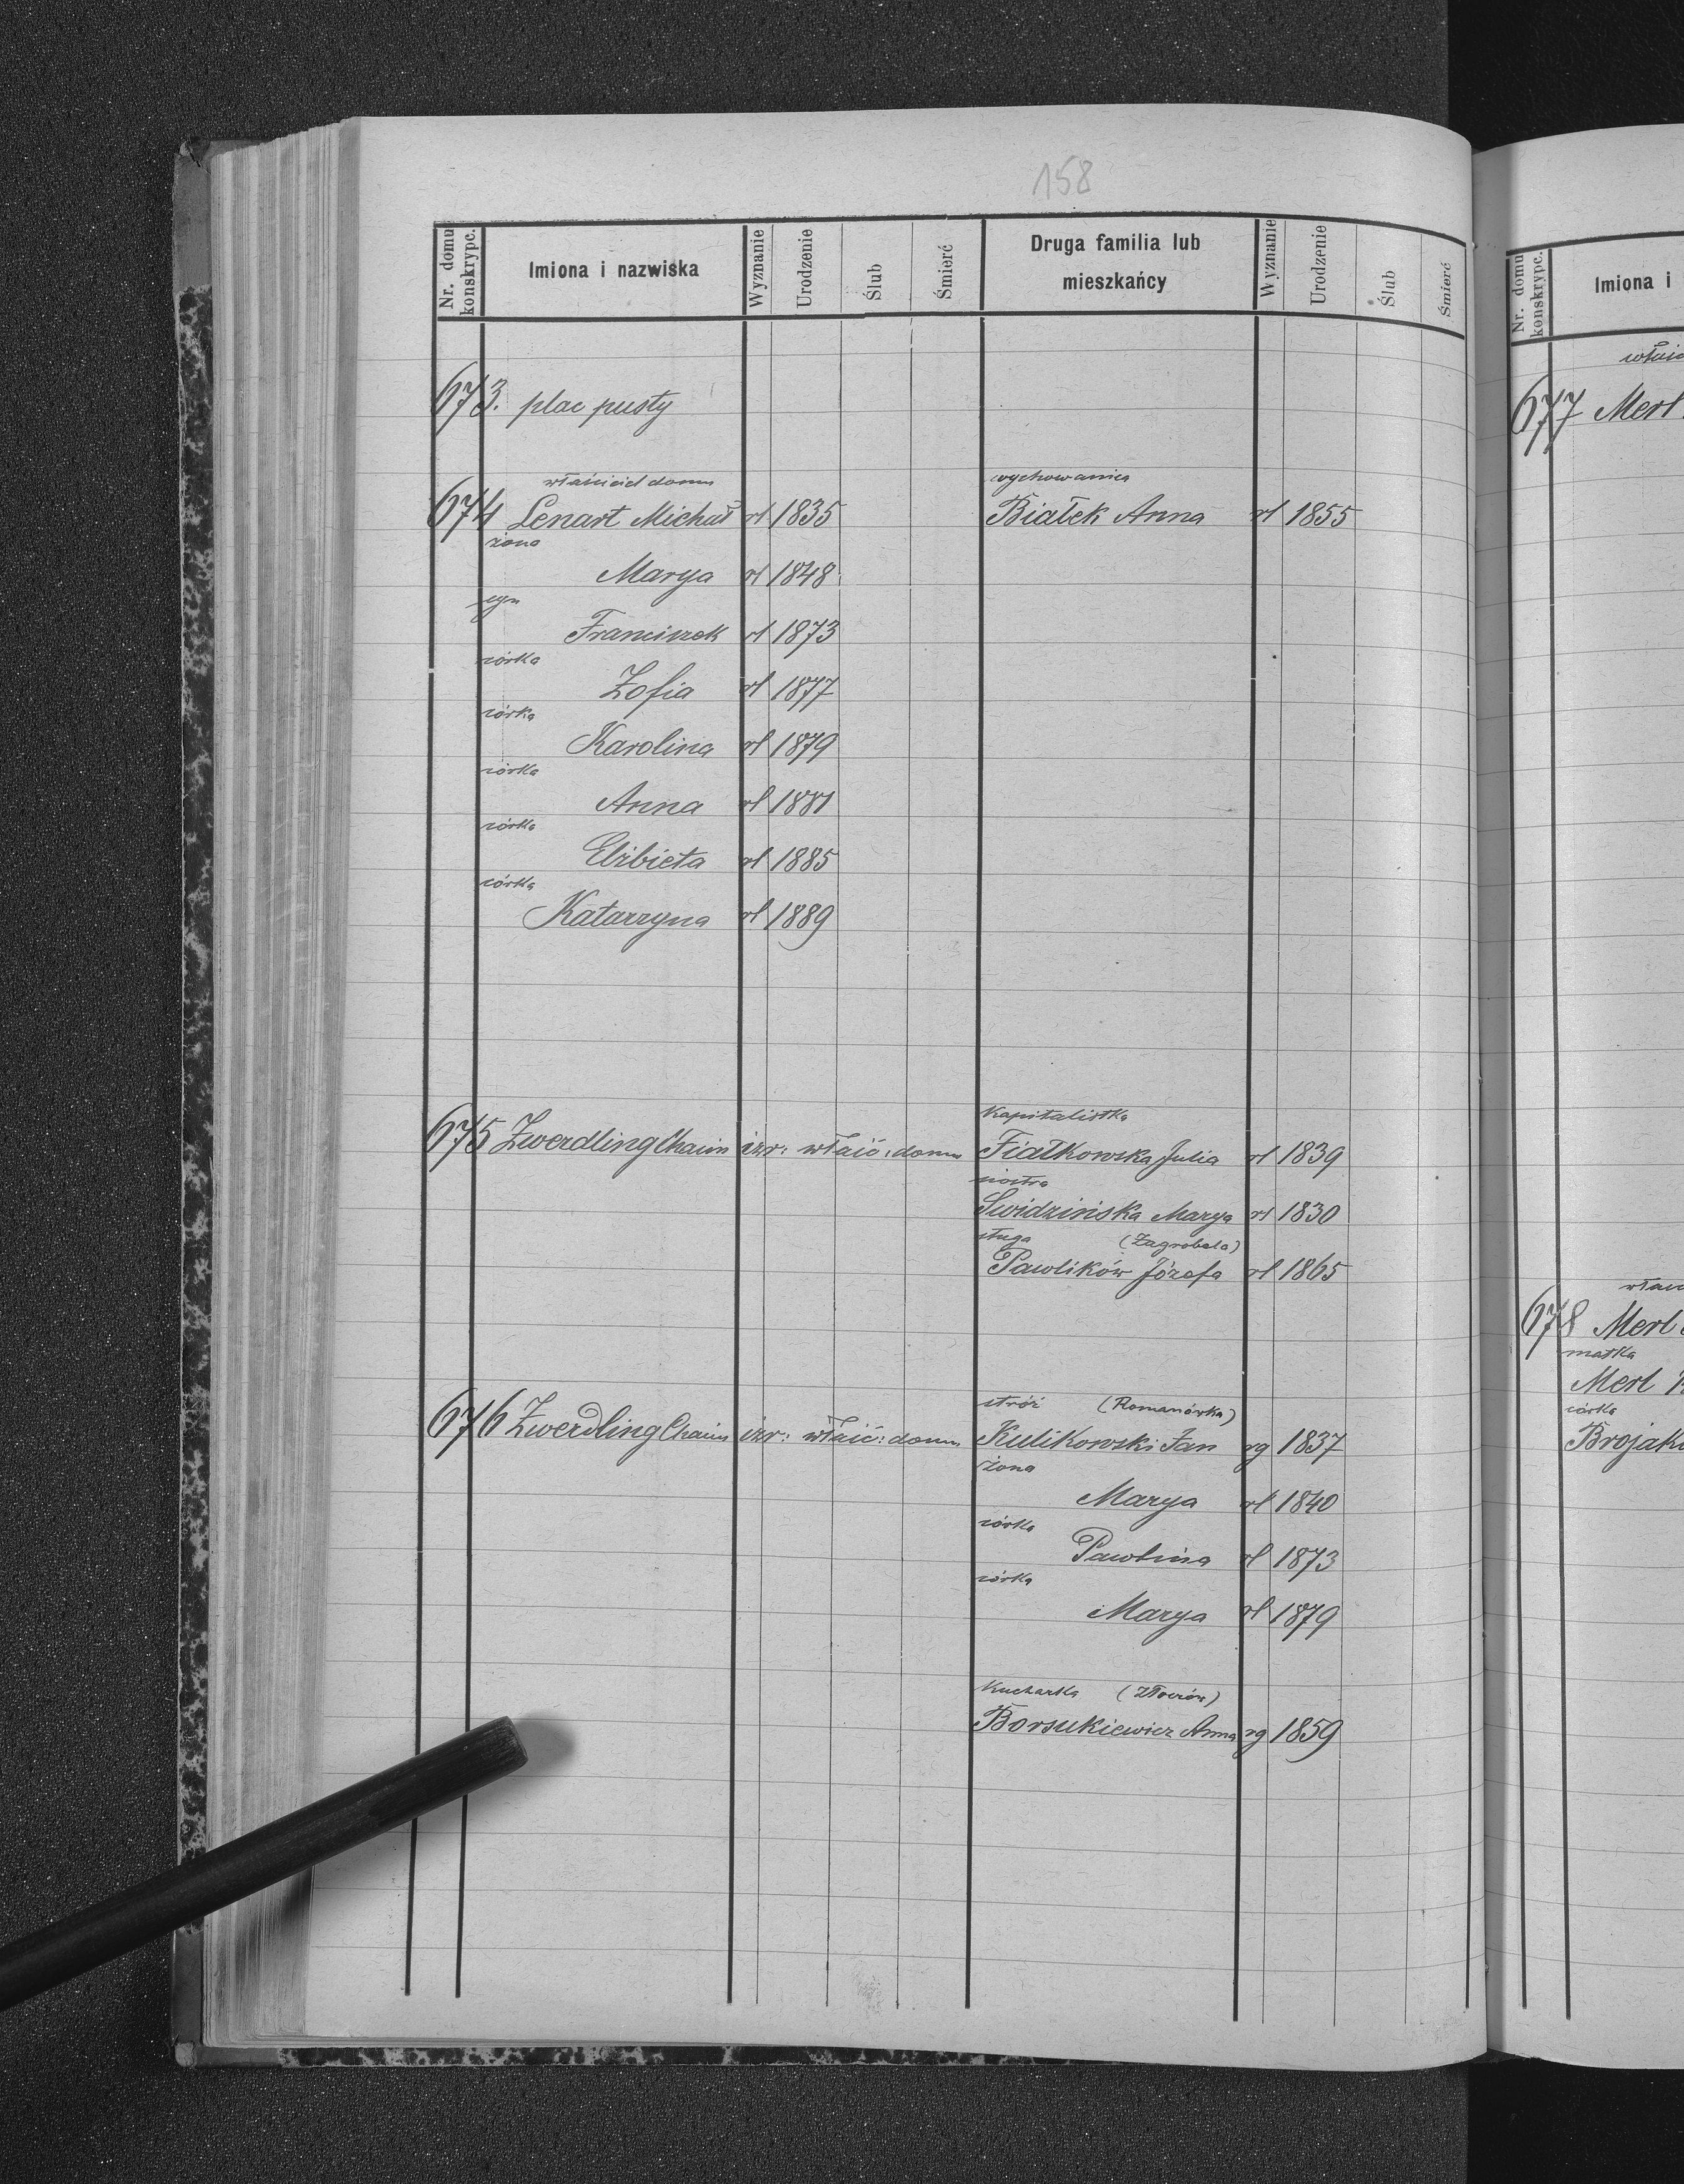 158
Nr. domu konskrypc.
Imiona i nazwiska
Wyznanie
Urodzenie
Ślub
Śmierć
Druga familia lub
mieszkańcy
Wyznanie
Urodzenie
Ślub
Śmierć
673. plac pusty
właściciel domu
674 Lenart Michał rł 1835
żona
Marya rł 1848
syn
Franciszek rł 1873
córka
Zofia rł 1877
córka
Karolina rł 1879
córka
Anna rł 1881
córka
Elżbieta rł 1885
córka
Katarzyna rł 1889
wychowanica
Białek Anna rł 1855
675 Zwerdling Chaim izr: właść: domu
Kapitalistka
Fiałkowska Julia rł 1839
siostra
Swidzińska Marya rł 1830
sługa (Zagrobela)
Pawlików Józefa rł 1865
676 Zwerdling Chaim izr: właść: domu
stróż (Romanówka)
Kulikowski Jan rg 1837
żona
Marya rł 1840
córka
Pawlina rł 1873
córka
Marya rł 1879
Kucharka (Złoczów)
Borsukiewicz Anna rg 1859
Nr. domu konskrypc.
Imiona i
677 Merl
678 Merl
matka
Merl
córka